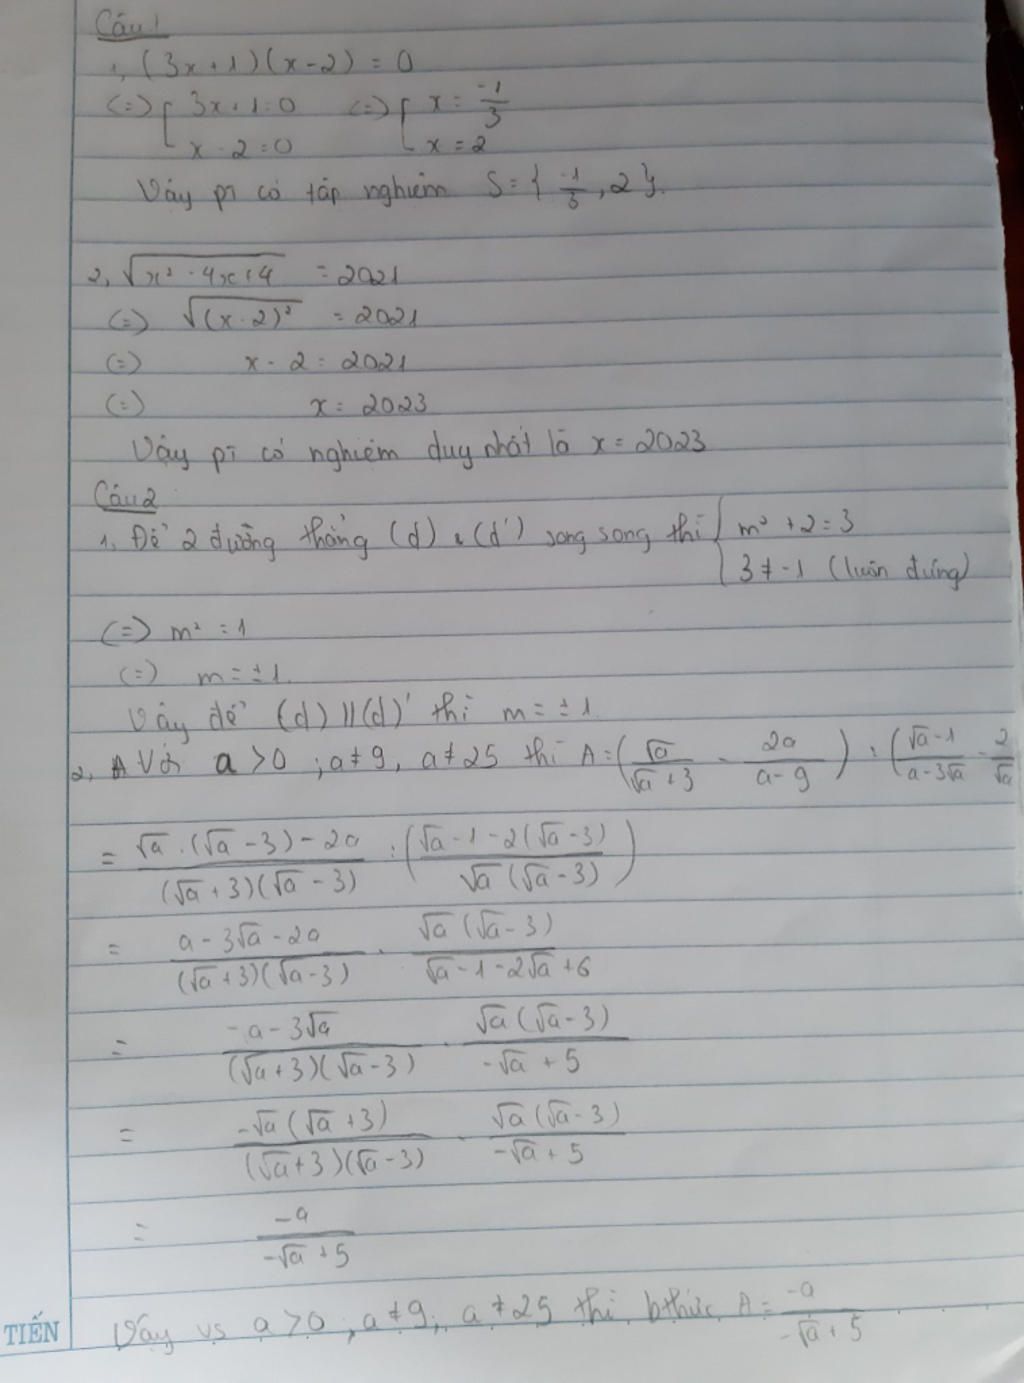 Câu 1
1, (3x+1)(x-2) = 0
(=) [ 3x+1=0 (=) [ x = -1/3
x-2=0 x = 2
Vậy pt có tập nghiệm S = { -1/3 , 2 }.
2, √(x² - 4x+4) = 2021
(=) √((x-2)²) = 2021
(=) x - 2 = 2021
(=) x = 2023
Vậy pt có nghiệm duy nhất là x = 2023
Câu 2
1, Để 2 đường thẳng (d) & (d') song song thì { m² + 2 = 3
3 ≠ -1 (luôn đúng)
(=) m² = 1
(=) m = ±1.
Vậy để (d) // (d)' thì m = ± 1
2, Với a > 0 ; a ≠ 9, a ≠ 25 thì A = (√a/(√a+3) - 2a/(a-9)) : ((√a-1)/(a-3√a) - 2/√a
= (√a.(√a-3)-2a)/((√a+3)(√a-3)) : ((√a-1-2(√a-3))/(√a(√a-3)))
= (a-3√a-2a)/((√a+3)(√a-3)) . (√a(√a-3))/(√a-1-2√a+6)
= (-a-3√a)/((√a+3)(√a-3)) . (√a(√a-3))/(-√a+5)
= (-√a(√a+3))/((√a+3)(√a-3)) . (√a(√a-3))/(-√a+5)
= -a/(-√a+5)
Vậy vs a > 0 ; a ≠ 9, a ≠ 25 thì bthức A = -a/(-√a+5)
TIẾN